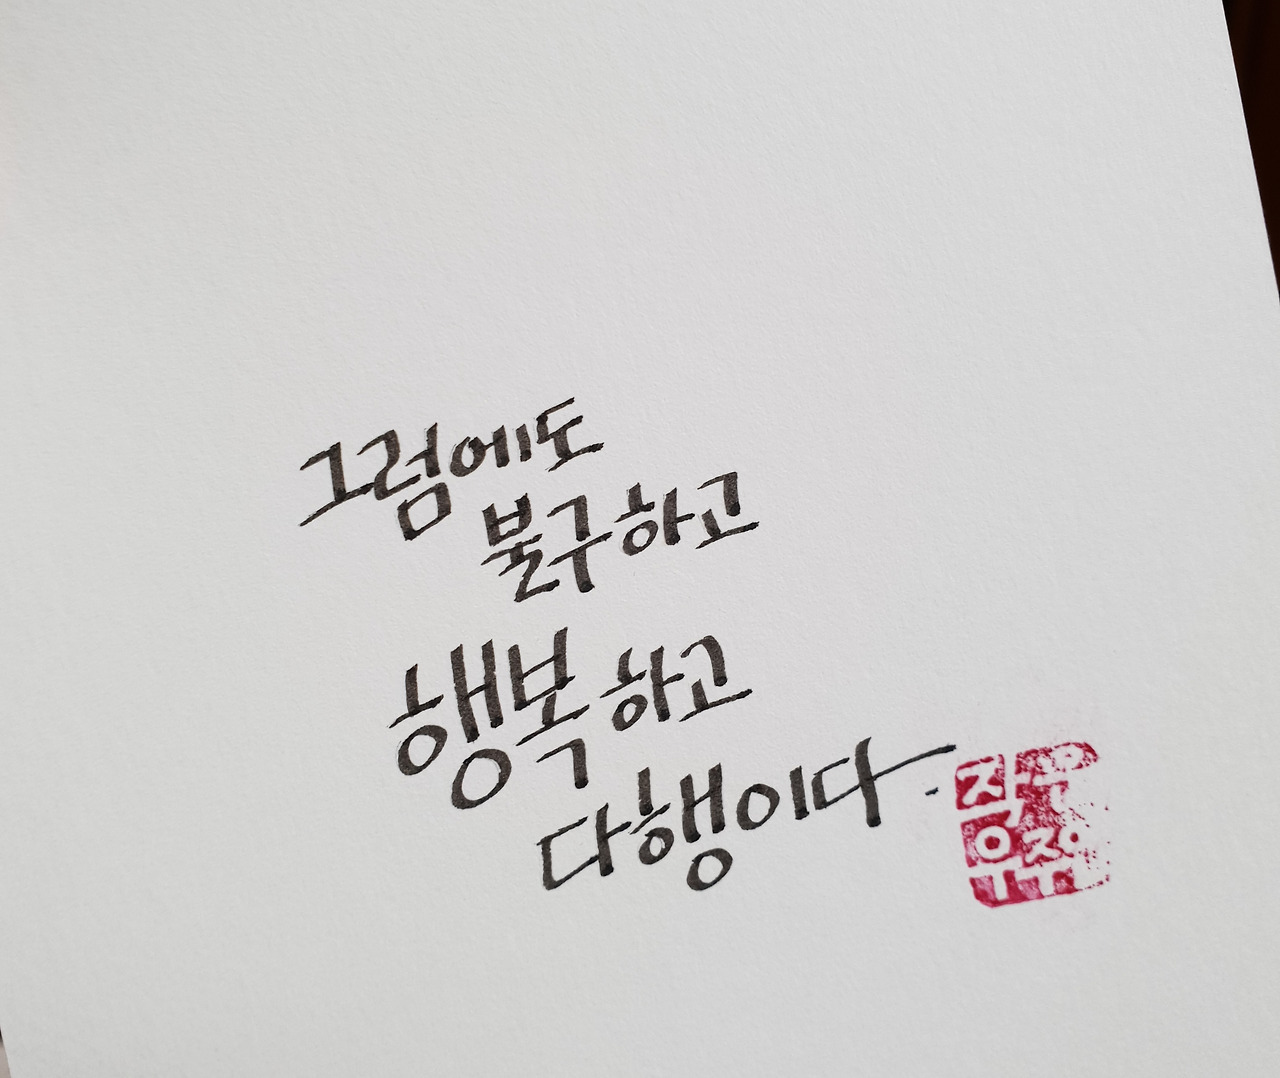 그럼에도
불구하고
행복하고
다행이다.
작은
우주